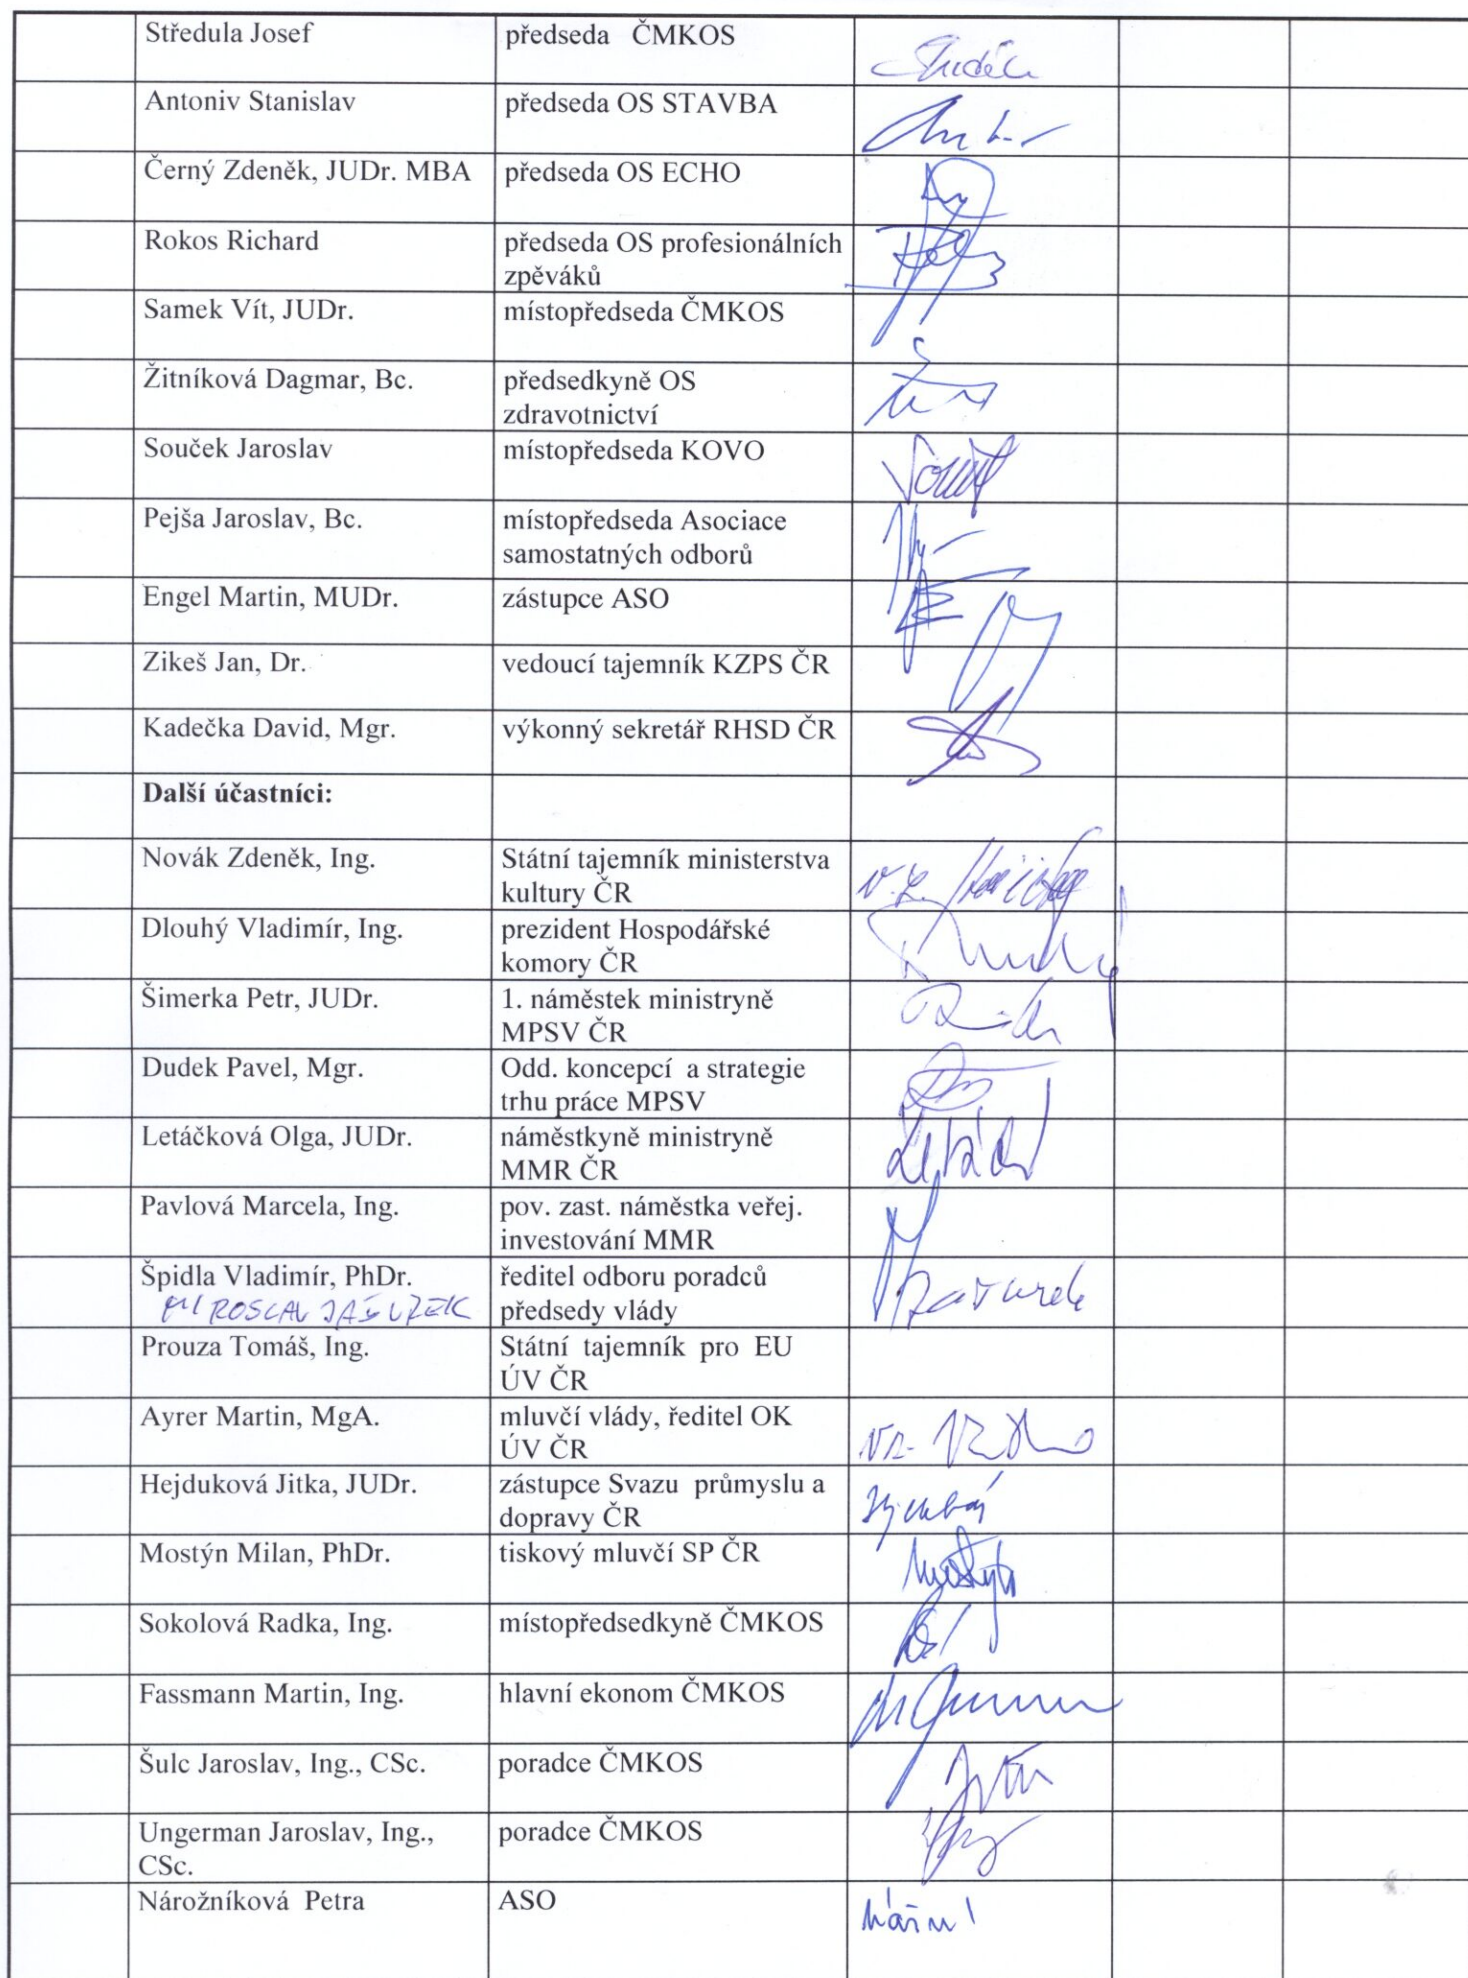 Středula Josef předseda ČMKOS
Antoniv Stanislav předseda OS STAVBA
Černý Zdeněk, JUDr. MBA předseda OS ECHO
Rokos Richard předseda OS profesionálních
zpěváků
Samek Vít, JUDr. místopředseda ČMKOS
Žitníková Dagmar, Bc. předsedkyně OS
zdravotnictví
Souček Jaroslav místopředseda KOVO
Pejša Jaroslav, Bc. místopředseda Asociace
samostatných odborů
Engel Martin, MUDr. zástupce ASO
Zikeš Jan, Dr. vedoucí tajemník KZPS ČR
Kadečka David, Mgr. výkonný sekretář RHSD ČR
Další účastníci:
Novák Zdeněk, Ing. Státní tajemník ministerstva
kultury ČR v.z.
Dlouhý Vladimír, Ing. prezident Hospodářské
komory ČR
Šimerka Petr, JUDr. 1. náměstek ministryně
MPSV ČR
Dudek Pavel, Mgr. Odd. koncepcí a strategie
trhu práce MPSV
Letáčková Olga, JUDr. náměstkyně ministryně
MMR ČR
Pavlová Marcela, Ing. pov. zast. náměstka veřej.
investování MMR
Špidla Vladimír, PhDr. ředitel odboru poradců
MIROSLAV předsedy vlády
Prouza Tomáš, Ing. Státní tajemník pro EU
ÚV ČR
Ayrer Martin, MgA. mluvčí vlády, ředitel OK
ÚV ČR
Hejduková Jitka, JUDr. zástupce Svazu průmyslu a
dopravy ČR
Mostýn Milan, PhDr. tiskový mluvčí SP ČR
Sokolová Radka, Ing. místopředsedkyně ČMKOS
Fassmann Martin, Ing. hlavní ekonom ČMKOS
Šulc Jaroslav, Ing., CSc. poradce ČMKOS
Ungerman Jaroslav, Ing., poradce ČMKOS
CSc.
Nárožníková Petra ASO